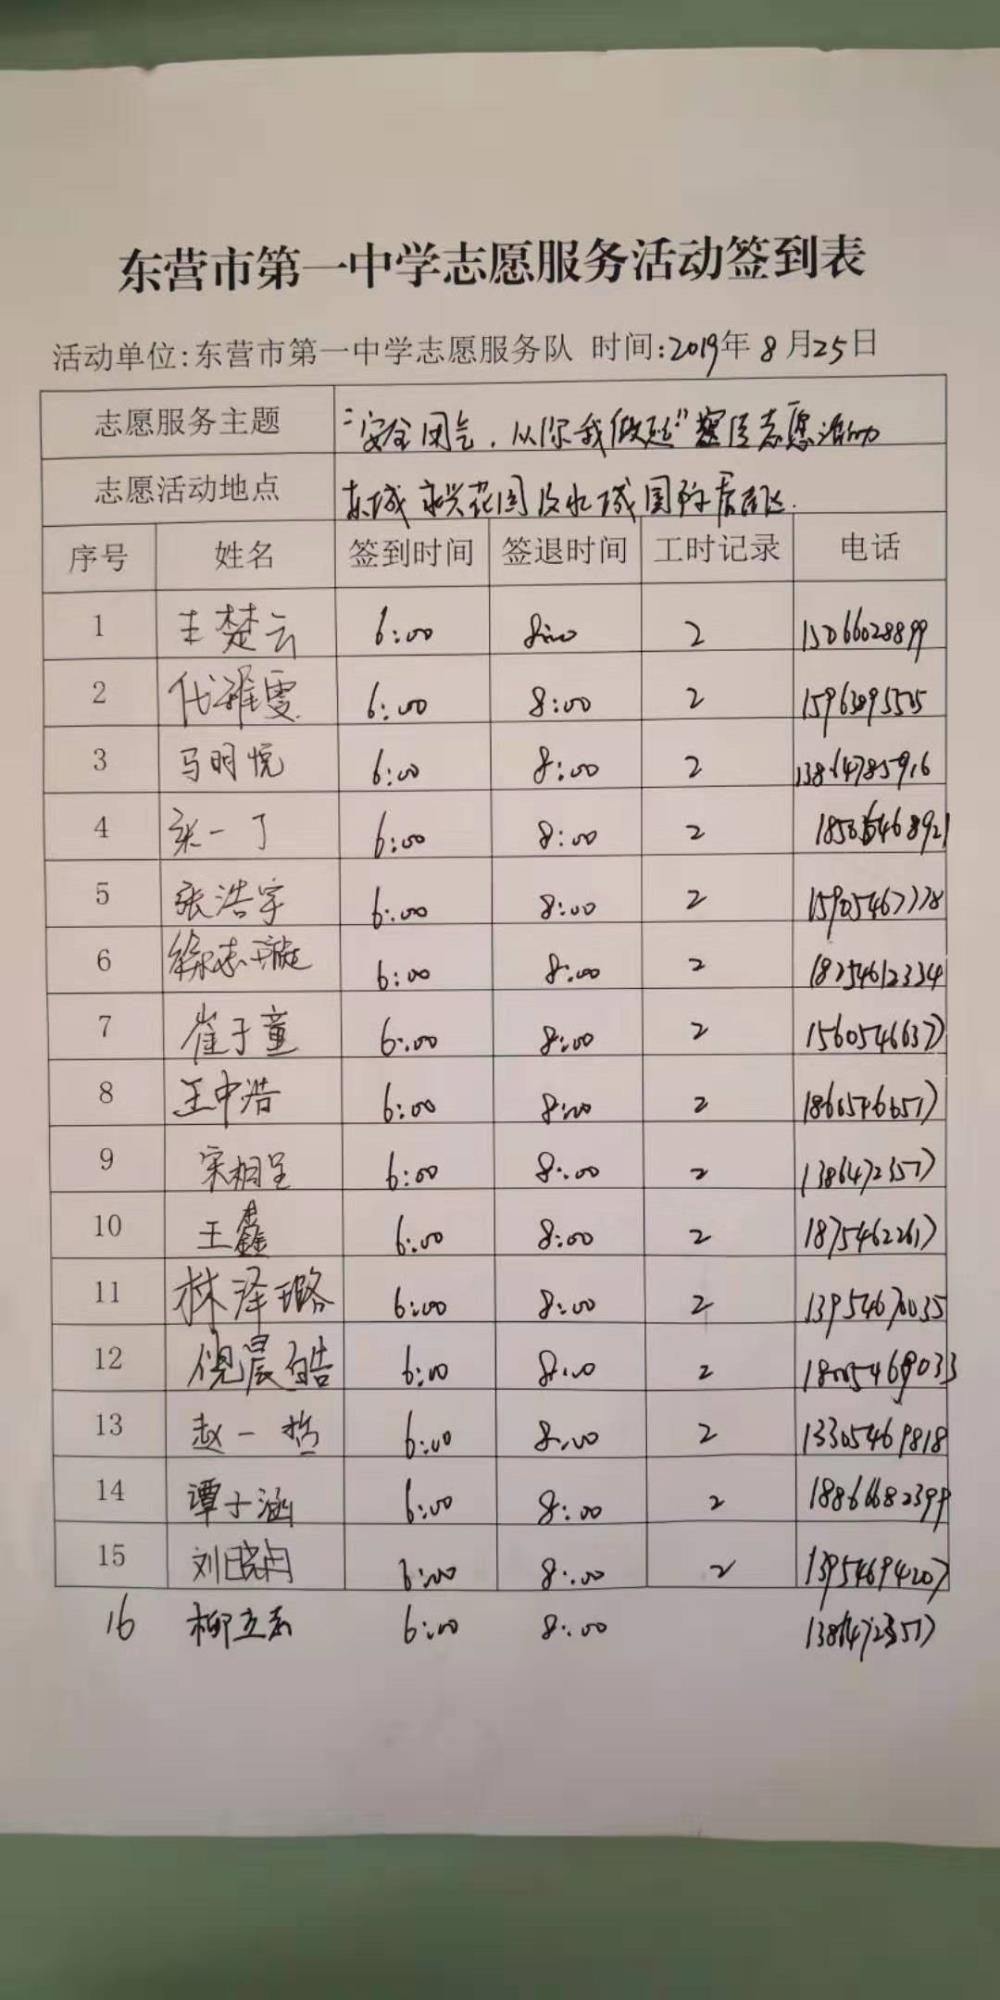 东营市第一中学志愿服务活动签到表
活动单位:东营市第一中学志愿服务队 时间:2019年8月25日
志愿服务主题 "安全用气,从你我做起"宣传志愿活动
志愿活动地点 东城 永兴花园及水城国际居民区.
序号 姓名 签到时间 签退时间 工时记录 电话
1 王楚云 6:00 8:00 2 15066028899
2 代雅雯 6:00 8:00 2
3 马明悦 6:00 8:00 2 13864785916
4 张一丁 6:00 8:00 2
5 张浩宇 6:00 8:00 2 15905467778
6 徐志璇 6:00 8:00 2 18254612334
7 崔于童 6:00 8:00 2 15605466377
8 王中浩 6:00 8:00 2 18605466517
9 宋相呈 6:00 8:00 2 13864723577
10 王鑫 6:00 8:00 2 18754622617
11 林泽璐 6:00 8:00 2 13954670035
12 倪晨皓 6:00 8:00 2 18005469033
13 赵一哲 6:00 8:00 2 13305469818
14 谭子涵 6:00 8:00 2 18866682399
15 刘晓冉 6:00 8:00 2 13954694207
16 柳立 6:00 8:00